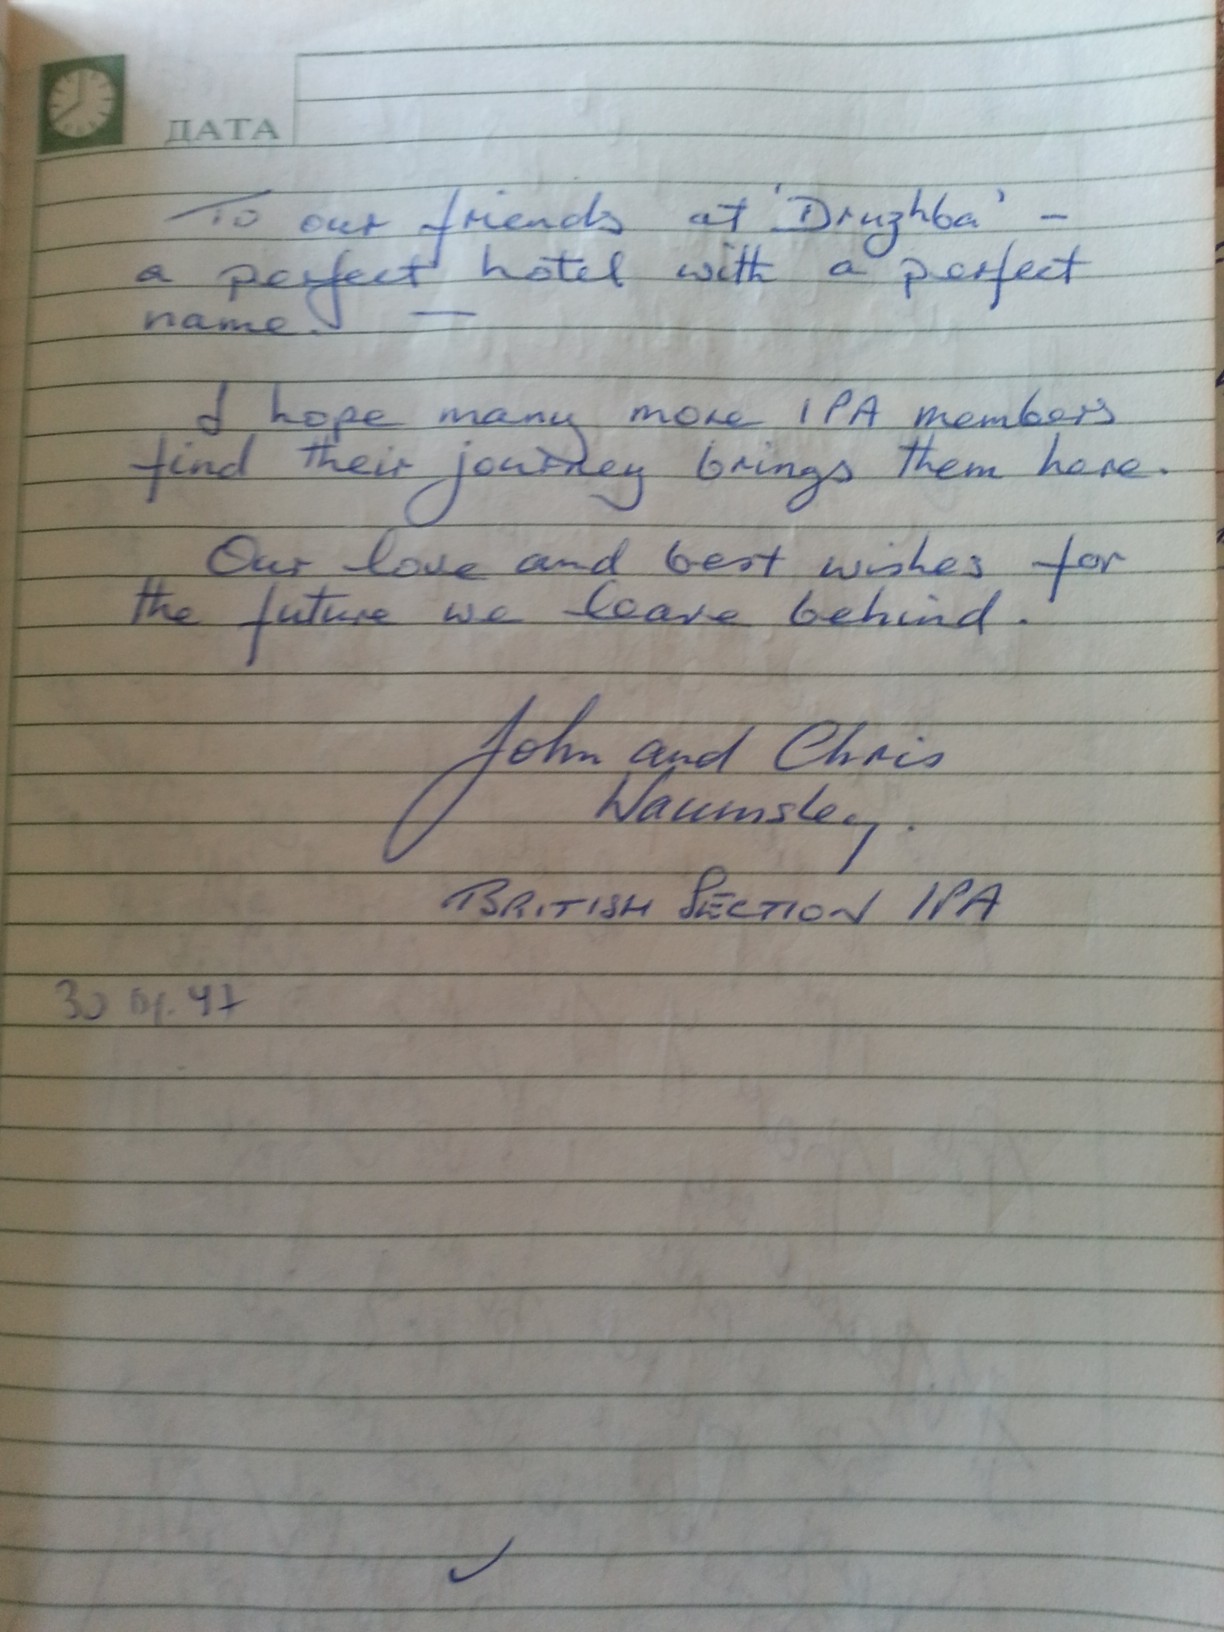 ДАТА
To our friends at 'Druzhba' -
a perfect hotel with a perfect
name. —
I hope many more IPA members
find their journey brings them here.
Our love and best wishes for
the future we leave behind.
John and Chris
Waumsley.
BRITISH SECTION IPA
30